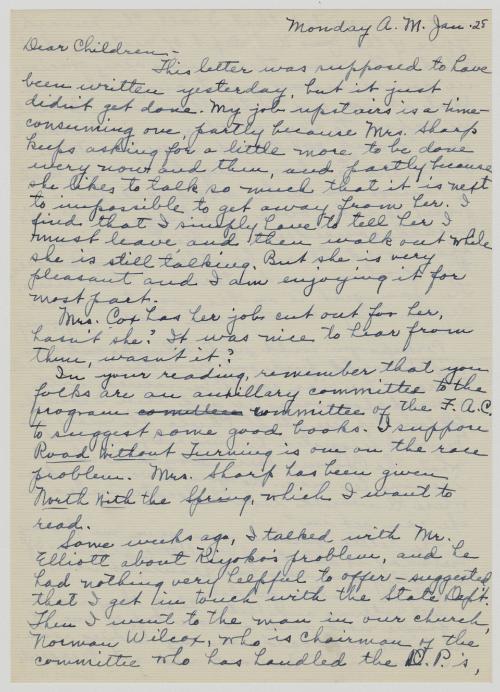 Monday A. M. Jan. 25
Dear Children,-
This letter was supposed to have
been written yesterday, but it just
didn't get done. My job upstairs is a time-
consuming one, partly because Mrs. Sharp
keeps asking for a little more to be done
every now and then, and partly because
she likes to talk so much that it is next
to impossible to get away from her. I
find that I simply have to tell her I
must leave, and then walk out while
she is still talking. But she is very
pleasant and I am enjoying it for
most part.
Mrs. Cox has her job cut out for her,
hasn't she? It was nice to hear from
them, wasn't it?
In your reading, remember that you
folks are an auxillary committee to the
program committee of the F. A. C.
to suggest some good books. I suppose
Road Without Turning is one on the race
problem. Mrs. Sharp has been given
North With the Spring, which I want to
read.
Some weeks ago, I talked with Mr.
Elliott about Kiyoko's problem, and he
had nothing very helpful to offer - suggested
that I get in touch with the State Dept.
Then I went to the man in our church,
Norman Wilcox, who is chairman of the
committee who has handled the D. P.'s,